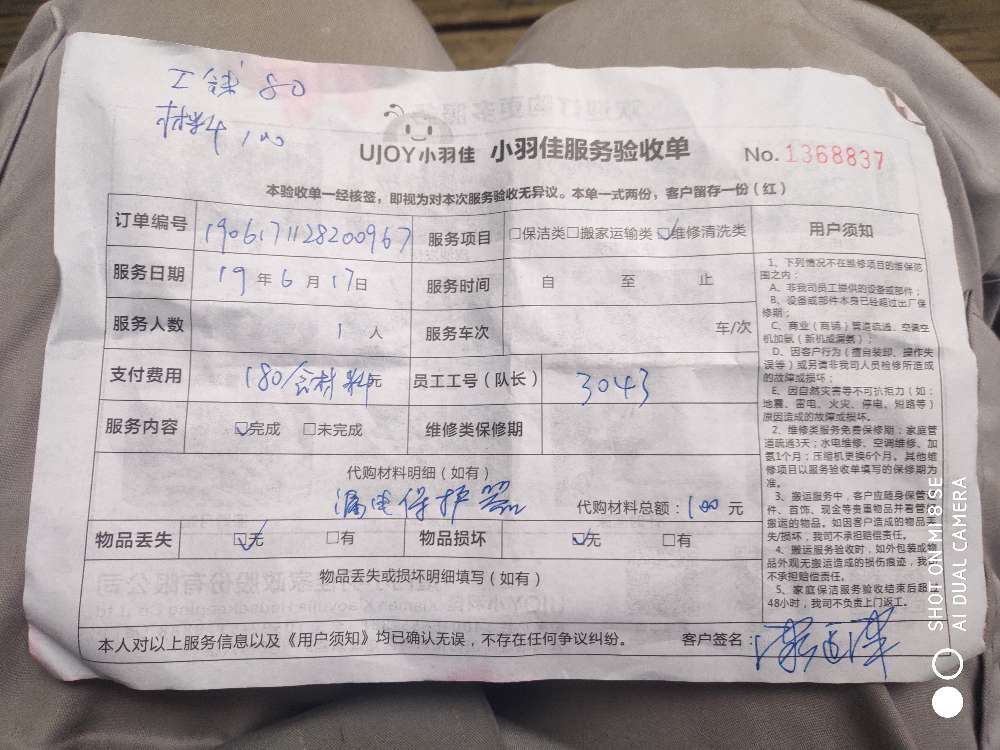 工钱 80
材料 100
UJOY小羽佳 小羽佳服务验收单 No. 1368837
本验收单一经核签，即视为对本次服务验收无异议。本单一式两份，客户留存一份（红）
订单编号 190617112820967 服务项目 □保洁类□搬家运输类☑维修清洗类 用户须知
服务日期 19年6月17日 服务时间 自 至 止
服务人数 1人 服务车次 车/次
支付费用 180/含材料元 员工工号（队长） 3043
服务内容 ☑完成 □未完成 维修类保修期
代购材料明细（如有）
漏电保护器 代购材料总额：100元
物品丢失 ☑无 □有 物品损坏 ☑无 □有
物品丢失或损坏明细填写（如有）
本人对以上服务信息以及《用户须知》均已确认无误，不存在任何争议纠纷。 客户签名：
1、下列情况不在维修项目的维保范
围之内：
A、非我司员工提供的设备或部件；
B、设备或部件本身已经超过出厂保
修期；
C、商业（商铺）管道疏通、空调空
机加氨（新机或漏氨）；
D、因客户行为（擅自装卸、操作失
误等）或另请非我司人员检修所造成
的故障或损坏；
E、因自然灾害等不可抗拒力（如：
地震、雷电、火灾、停电、短路等）
原因造成的故障或损坏。
2、维修类服务免费保修期：家庭管
道疏通3天；水电维修、空调维修、加
氨1个月；压缩机更换6个月。其他维
修项目以服务验收单填写的保修期为
准。
3、搬运服务中，客户应随身保管证
件、首饰、现金等贵重物品并看管待
搬运的物品。如因客户造成的物品丢
失/损坏，我司不承担赔偿责任。
4、搬运服务验收时，如外包装或物
品外观无搬运造成的损伤痕迹，我司
不承担赔偿责任。
5、家庭保洁服务验收结束后超过
48小时，我司不负责上门返工。
SHOT ON MI 8 SE
AI DUAL CAMERA